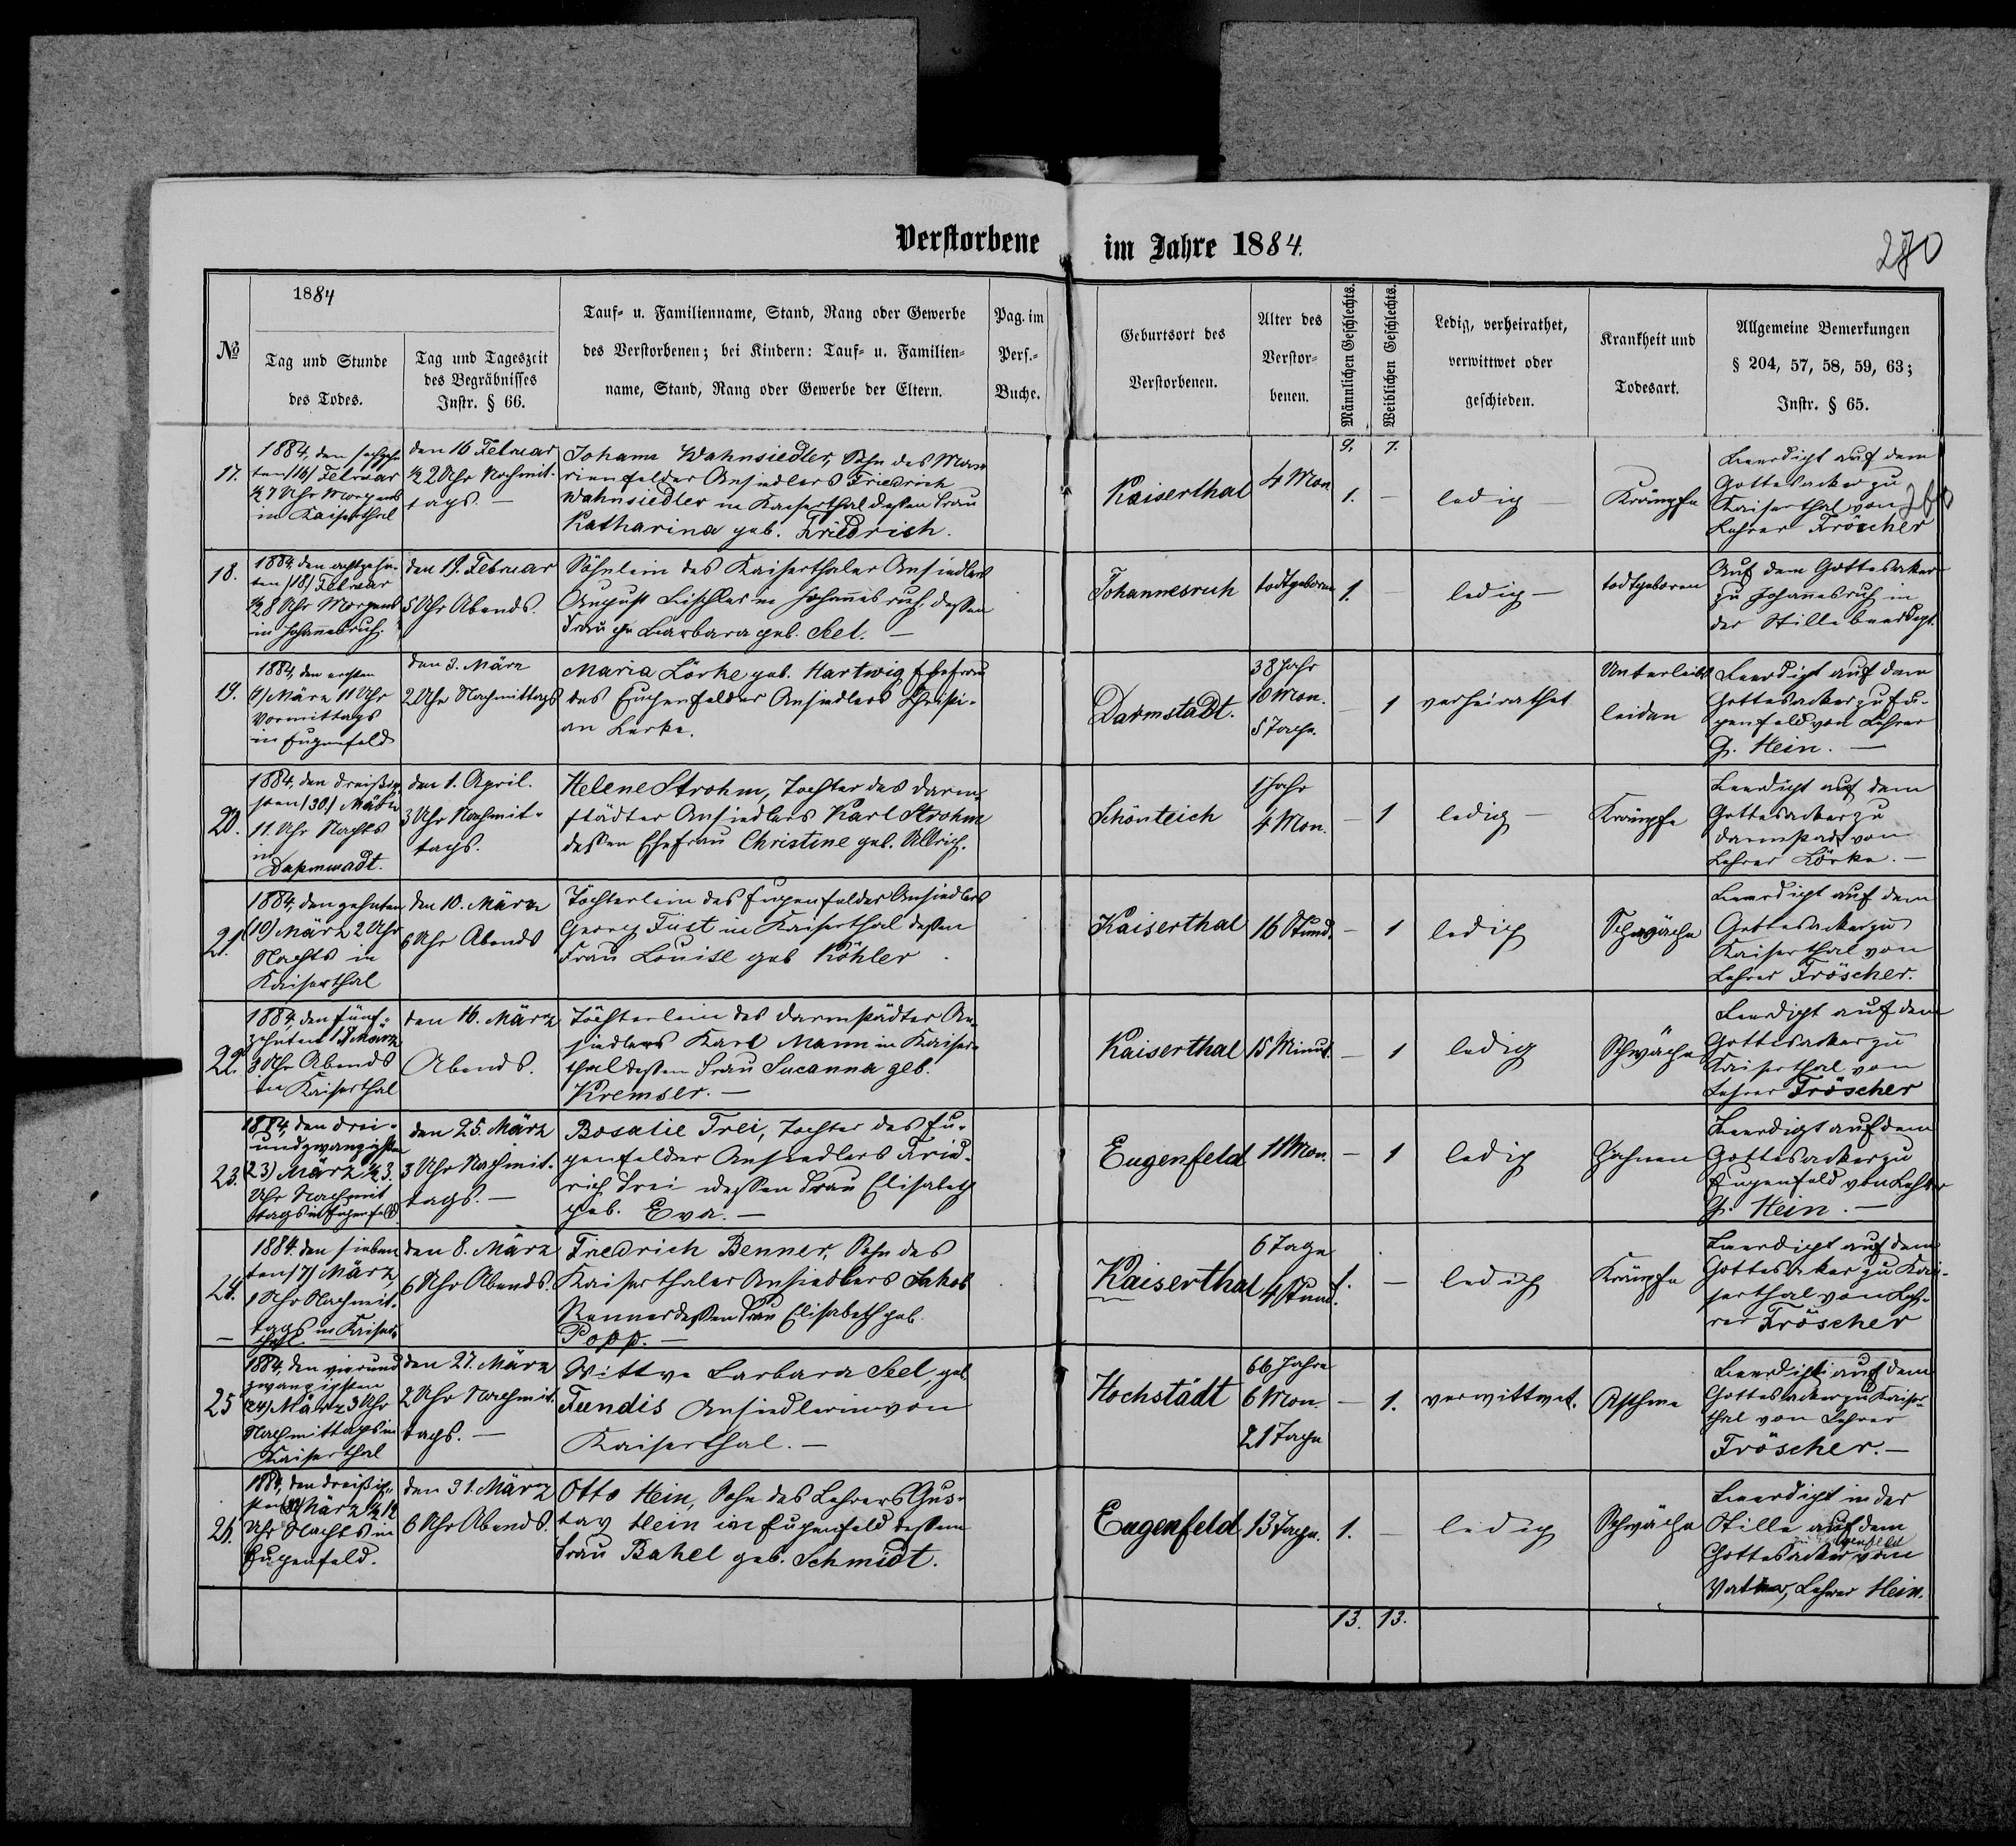 Verstorbene im Jahre 1884.
280
1884
№
Tag und Stunde
des Todes.
Tag und Tageszeit
des Begräbnisses
Instr. § 66.
Tauf- u. Familienname, Stand, Rang oder Gewerbe
des Verstorbenen; bei Kindern: Tauf- u. Familien-
name, Stand, Rang oder Gewerbe der Eltern.
Pag. im
Pers.-
Buche.
Geburtsort des
Verstorbenen.
Alter des
Verstor-
benen.
Männlichen Geschlechts.
Weiblichen Geschlechts.
Ledig, verheirathet,
verwittwet oder
geschieden.
Krankheit und
Todesart.
Allgemeine Bemerkungen
§ 204, 57, 58, 59, 63;
Instr. § 65.
9. 7.
17.
1884, den sechzehn
ten (16) Februar
½ 7 Uhr Morgens
in Kaiserthal
den 16 Februar
½ 2 Uhr Nachmit-
tags. —
Johann Wahnsiedler, Sohn des Ma-
rienfelder Ansiedlers Friedrich
Wahnsiedler in Kaiserthal dessen Frau
Katharina geb. Friedrich.
Kaiserthal
4 Mon
1. —
ledig —
Krämpfe
Beerdigt auf dem
Gottesacker zu
Kaiserthal von
Lehrer Fröscher
18.
1884, den achtzehn-
ten (18) Februar
½ 8 Uhr Morgens
in Johannesruh.
den 19. Februar
5 Uhr Abends.
Söhnlein des Kaiserthaler Ansiedlers
August Tischler in Johannesruh, dessen
Frau Barbara geb. Seel. —
Johannesruh
todtgeboren
1. —
ledig —
todtgeboren
Auf dem Gottesacker
zu Johannesruh in
der Stille beerdigt.
19.
1884, den ersten
(1) März 11 Uhr
Vormittags
in Eugenfeld
den 3. März
2 Uhr Nachmittags
Maria Lörke geb. Hartwig Ehefrau
des Eugenfelder Ansiedlers Christi-
an Lerke.
Darmstadt.
38 Jahr
10 Mon.
5 Tage.
— 1
verheirathet
Unterleibs
leiden
Beerdigt auf dem
Gottesacker zu Eu-
genfeld von Lehrer
G. Hein. —
20.
1884, den dreißig-
sten (30) März
11. Uhr Nachts
in
den 1. April.
3 Uhr Nachmit-
tags.
Helene Strohm, Tochter des Darm-
städter Ansiedlers Karl Strohm
dessen Ehefrau Christine geb. Ullrich.
Schönteich
1 Jahr
4 Mon.
— 1
ledig —
Krämpfe
Beerdigt auf dem
Gottesacker zu
Darmstadt von
Lehrer Lörke. —
21.
1884, den zehnten
(10) März 2 Uhr
Nachts in
Kaiserthal
den 10. März
6 Uhr Abends
Töchterlein des Eugenfelder Ansiedlers
Georg Füst in Kaiserthal dessen
Frau Louise geb Köhler.
Kaiserthal
16 Stund.
— 1
ledig
Schwäche
Beerdigt auf dem
Gottesacker zu
Kaiserthal von
Lehrer Fröscher.
22.
1884, den fünf-
zehnten März
8 Uhr Abends
in Kaiserthal
den 16. März
Abends.
Töchterlein des Darmstädter An-
siedlers Karl Mann in Kaiser-
thal dessen Frau Sucanna geb.
Kremser. —
Kaiserthal
15 Minut.
— 1
ledig
Schwäche
Beerdigt auf dem
Gottesacker zu
Kaiserthal von
Lehrer Fröscher
23.
1884, den drei-
undzwanzigsten
(23) März ½ 3.
Uhr Nachmit
tags in Eugenfeld
den 25. März
3 Uhr Nachmit-
tags. —
Rosalie Frei, Tochter des Eu-
genfelder Ansiedlers Frid-
rich Frei dessen Frau Elisabeth
geb. Eva. —
Eugenfeld
11 Mon.
— 1
ledig
Zahnen
Beerdigt auf dem
Gottesacker zu
Eugenfeld von Lehrer
G. Hein. —
24.
1884. den sieben
ten (7) März,
1 Uhr Nachmit-
tags in Kaiser-
thal.
den 8. März
6 Uhr Abends.
Friedrich Benner, Sohn des
Kaiserthaler Ansiedlers Jakob
Renner dessen Frau Elisabeth geb.
Popp. —
Kaiserthal
6 Tage
4 Stund.
1. —
ledig
Krämpfe
Beerdigt auf dem
Gottesacker zu Kai-
serthal von Leh-
rer Fröscher
25
1884, den vierund
zwanzigsten
(24) März 3 Uhr
Nachmittags in
Kaiserthal
den 27. März
2 Uhr Nachmit.
tags. —
Wittwe Barbara Seel, geb.
Fundis Ansiedlerin von
Kaiserthal. —
Hochstädt
66 Jahre
6 Mon.
21 Tage
— 1.
verwittwet.
Asthma
Beerdigt auf dem
Gottesacker zu Kaiser-
thal von Lehrer
Fröscher. —
26.
1884, den dreißig-
sten (30) März ½ 12
Uhr Nachts in
Eugenfeld.
den 31. März
6 Uhr Abends.
Otto Hein, Sohn des Lehrers Gus-
tav Hein in Eugenfeld dessen
Frau Rahel geb. Schmidt.
Eugenfeld
13 Tage.
1. —
ledig
Schwäche
Beerdigt in der
Stille auf dem
Gottesacker vom
Vater, Lehrer Hein.
13. 13.